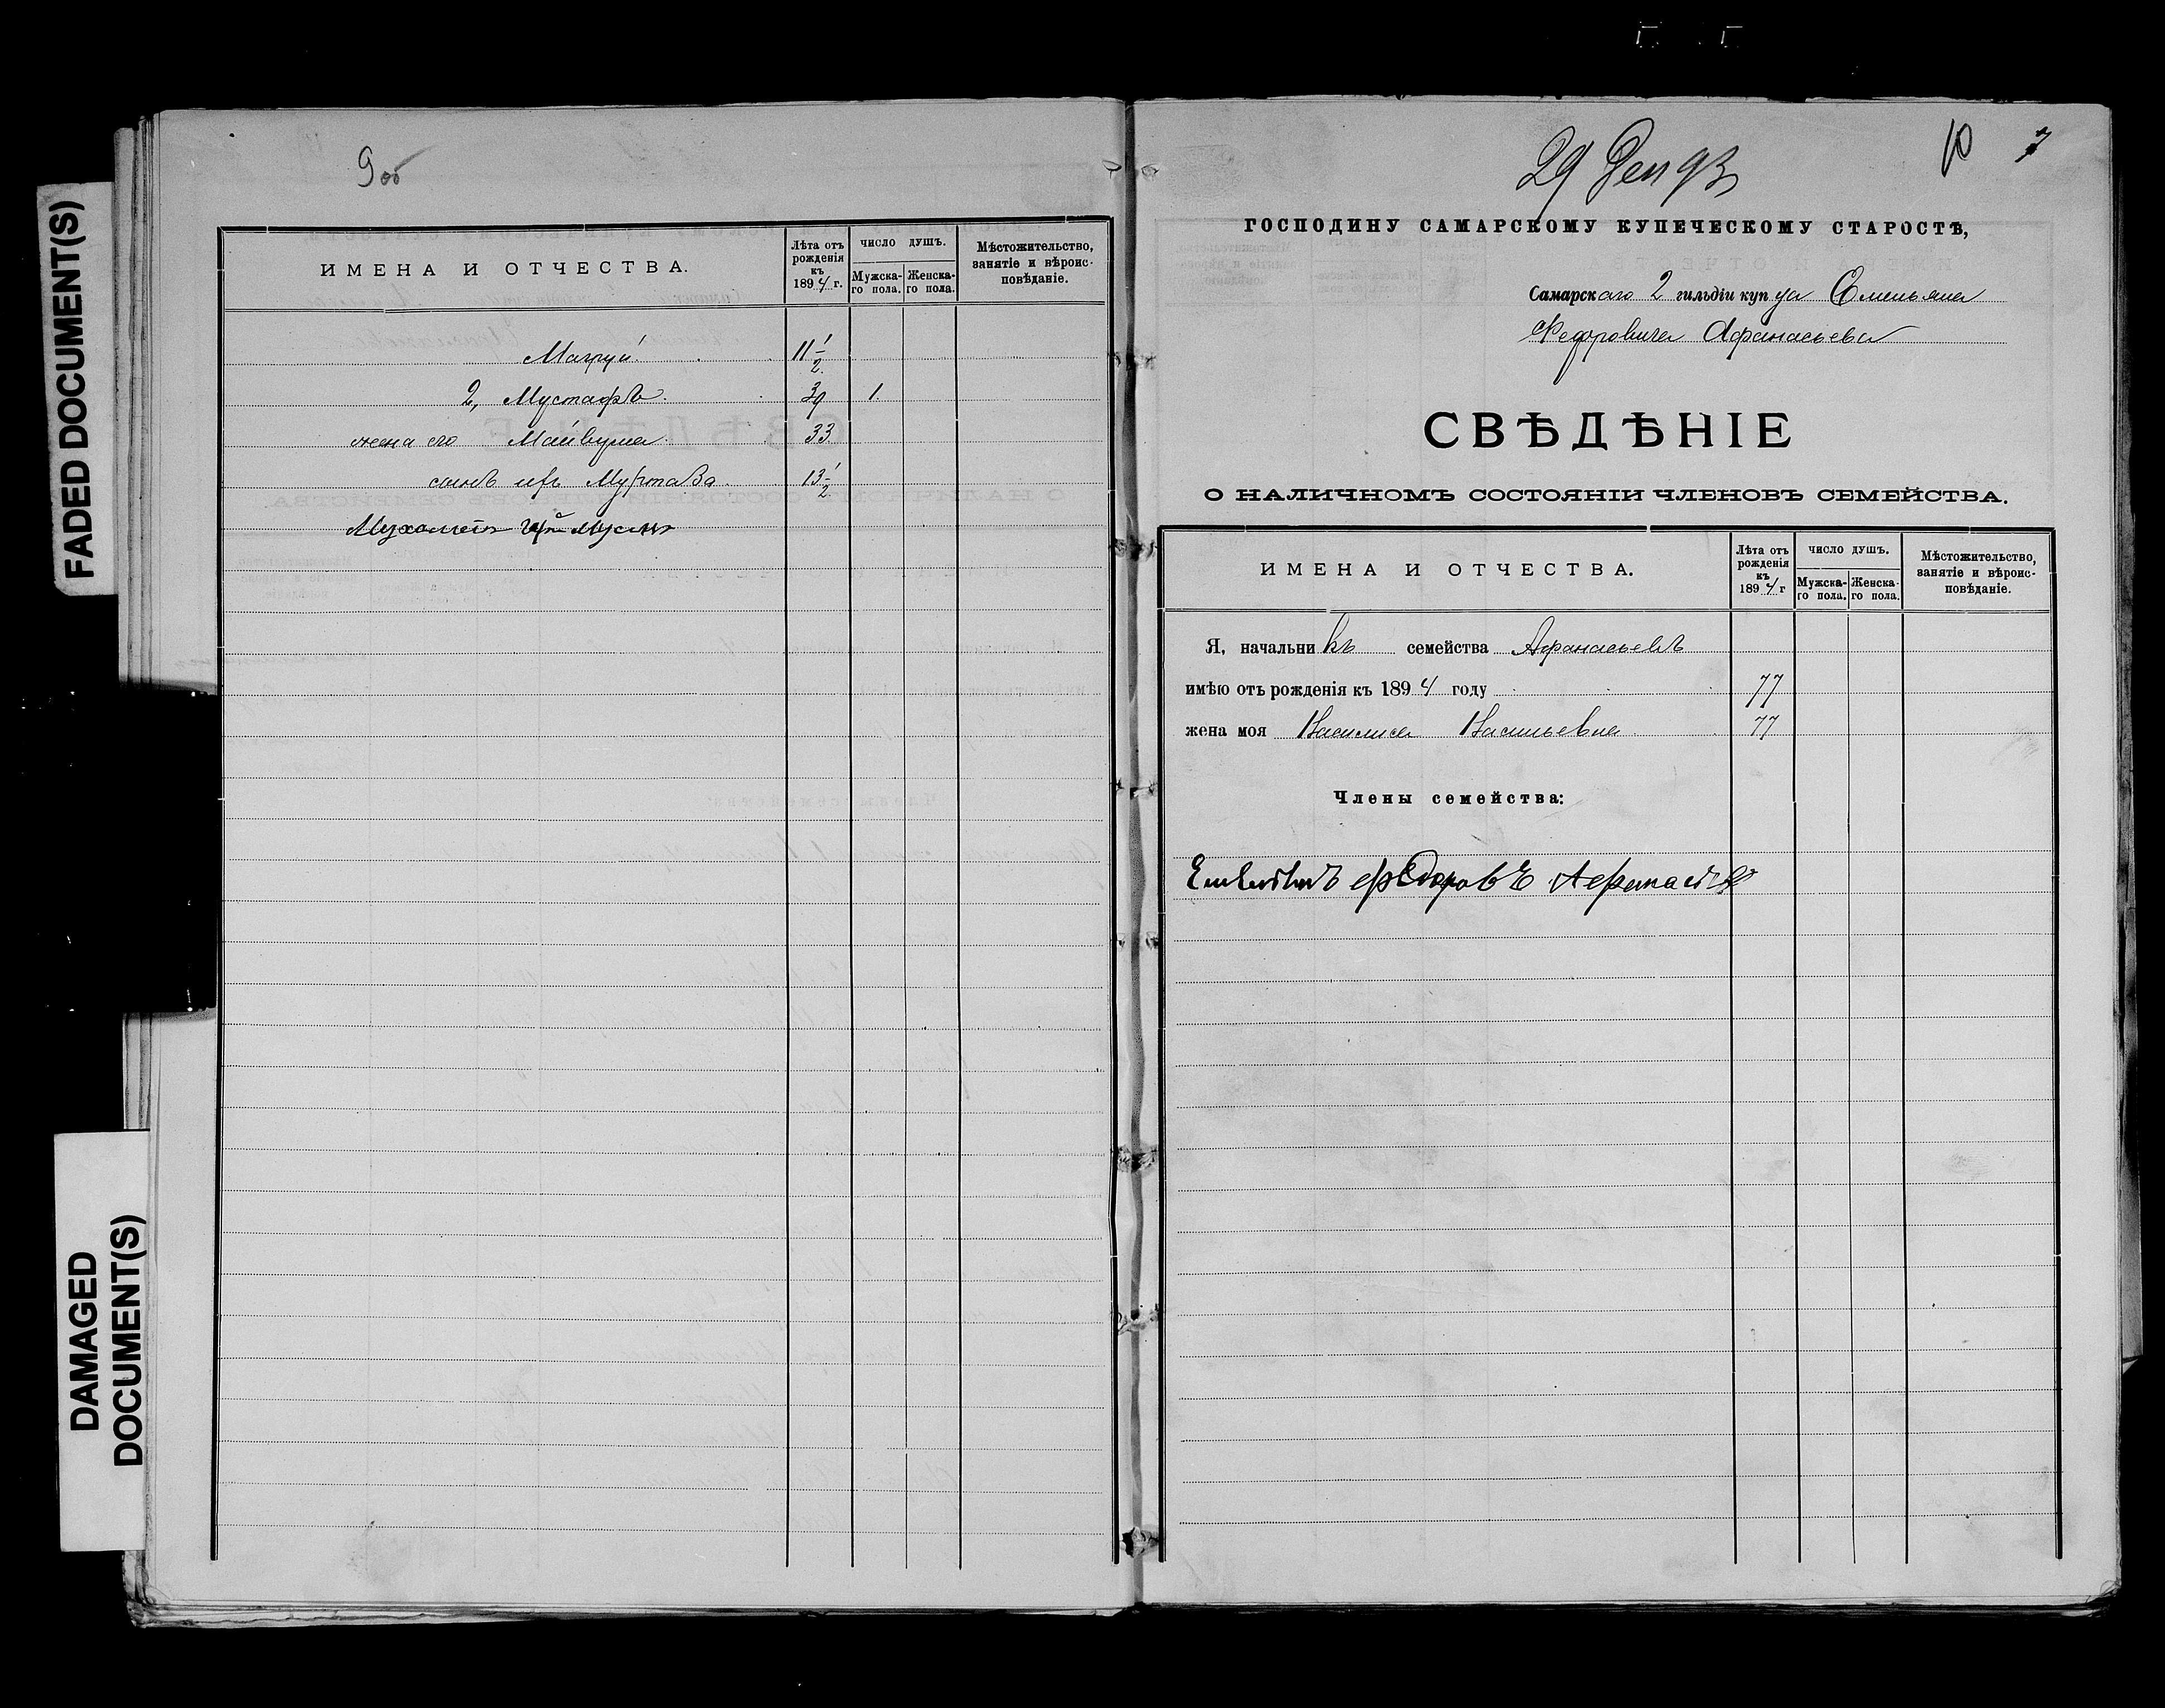 FADED DOCUMENT(S)
DAMAGED
DOCUMENT(S)
9 об
ИМЕНА И ОТЧЕСТВА.
Лѣта отъ рожденія къ 1894 г.
ЧИСЛО ДУШЪ.
Мужска-го пола.
Женска-го пола.
Мѣстожительство, занятіе и вѣроис-повѣданіе.
11 1/2
2, Мустафа 39 1
жена его 33
сынъ ихъ Муртаза 13 1/2
29 Дек 93
10
ГОСПОДИНУ САМАРСКОМУ КУПЕЧЕСКОМУ СТАРОСТѢ,
Самарскаго 2 гильдіи купца Емельяна
Федоровича Афанасьева
СВѢДѢНІЕ
О НАЛИЧНОМЪ СОСТОЯНІИ ЧЛЕНОВЪ СЕМЕЙСТВА.
ИМЕНА И ОТЧЕСТВА.
Лѣта отъ рожденія къ 1894 г
ЧИСЛО ДУШЪ.
Мужска-го пола.
Женска-го пола.
Мѣстожительство, занятіе и вѣроис-повѣданіе.
Я, начальникъ семейства Афанасьевъ
имѣю отъ рожденія къ 1894 году 77
жена моя Василиса Васильевна 77
Члены семейства: